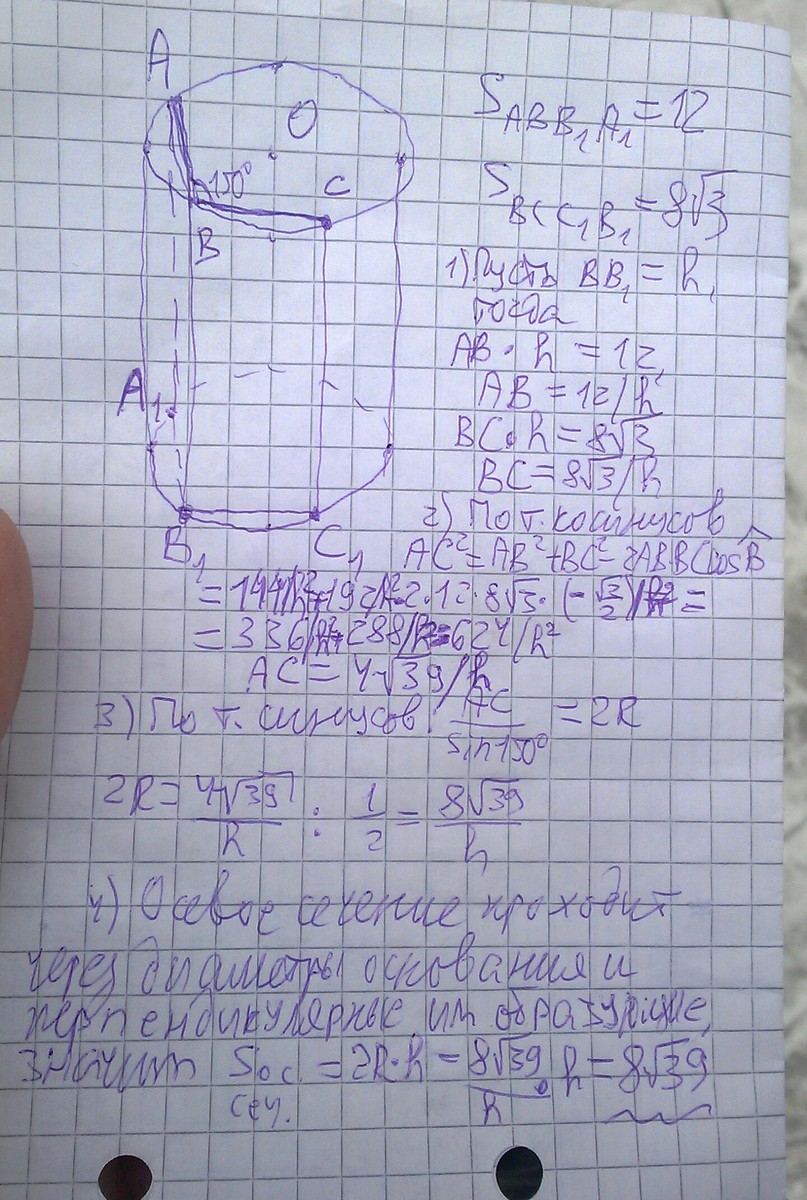 A
O
150°
C
B
A₁
B₁
C₁
S_ABB₁A₁ = 12
S_BCC₁B₁ = 8√3
1) Пусть BB₁ = h,
тогда
AB · h = 12,
AB = 12/h
BC · h = 8√3
BC = 8√3/h
2) По т. косинусов
AC² = AB² + BC² - 2AB·BC cos B̂
= 144/h² + 192/h² - 2·12·8√3·(-√3/2)/h² =
= 336/h² + 288/h² = 624/h²
AC = 4√39/h
3) По т. синусов AC/sin150° = 2R
2R = 4√39/h : 1/2 = 8√39/h
4) Осевое сечение проходит
через диаметры основания и
перпендикулярные им образующие,
значит S ос. = 2R·h = 8√39/h · h = 8√39
сеч.